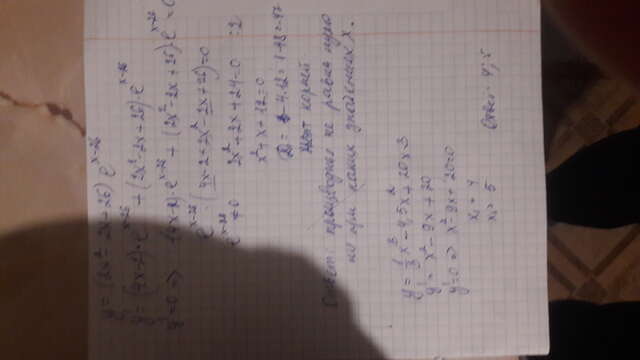 y = (2x² - 2x + 26) e^(x-26)
y' = (4x-2)·e^(x-26) + (2x² - 2x + 26)·e^(x-26)
y' = 0 => (4x-2)·e^(x-26) + (2x² - 2x + 26)·e^(x-26) = 0
e^(x-26) (4x - 2 + 2x² - 2x + 26) = 0
e^(x-26) ≠ 0 2x² + 2x + 24 = 0 :2
x² + x + 12 = 0
D = 1 - 4·12 = 1 - 48 = -47
нет корней
Ответ: производная не равна нулю
ни при каких значениях x.
y = 1/3 x³ - 4,5x² + 20x - 3
y' = x² - 9x + 20
y' = 0 => x² - 9x + 20 = 0
x₁ = 4
x₂ = 5 Ответ: 4; 5